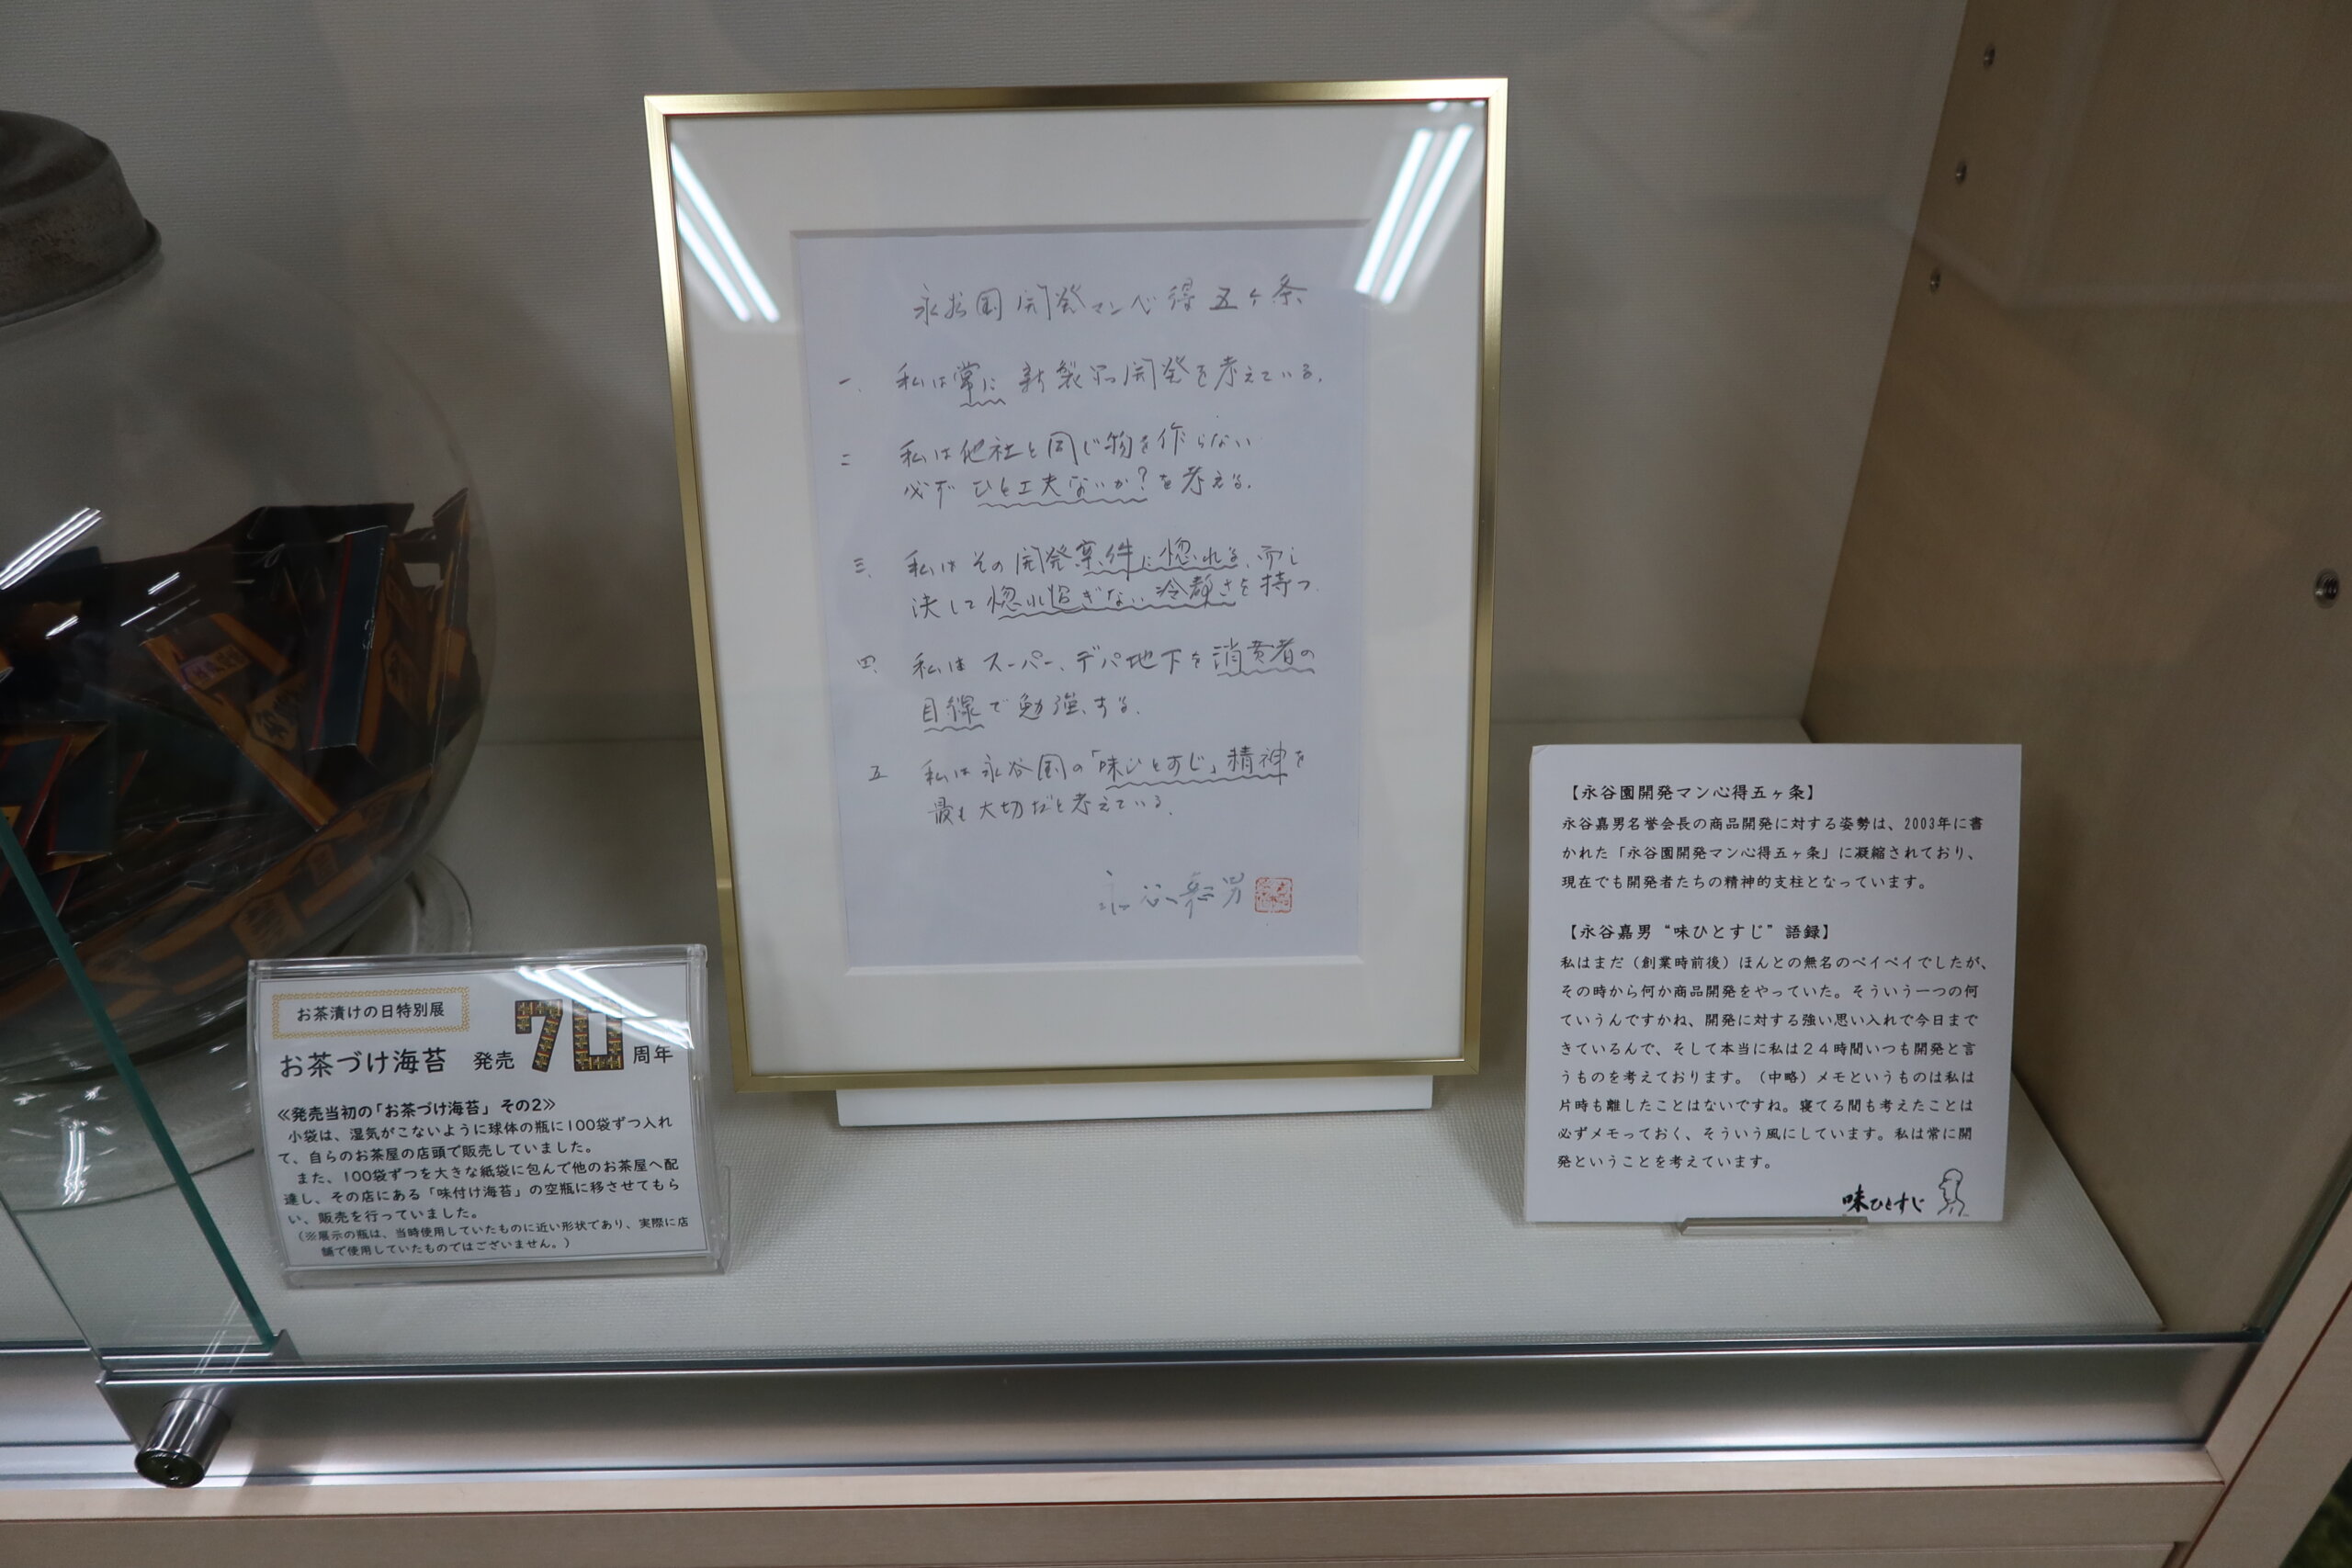 永谷園開発マン心得五ヶ条
一、私は常に新製品開発を考えている。
二 私は他社と同じ物を作らない
必ずひと工夫ないか?を考える。
三、私はその開発案件に惚れる、而し
決して惚れ過ぎない冷静さを持つ
四、私はスーパー、デパ地下を消費者の
目線で勉強する。
五 私は永谷園の「味ひとすじ」精神を
最も大切だと考えている。
永谷嘉男
お茶漬けの日特別展
お茶づけ海苔 発売70周年
≪発売当初の「お茶づけ海苔」その2≫
小袋は、湿気がこないように球体の瓶に100袋ずつ入れ
て、自らのお茶屋の店頭で販売していました。
また、100袋ずつを大きな紙袋に包んで他のお茶屋へ配
達し、その店にある「味付け海苔」の空瓶に移させてもら
い、販売を行っていました。
(※展示の瓶は、当時使用していたものに近い形状であり、実際に店
舗で使用していたものではございません。)
【永谷園開発マン心得五ヶ条】
永谷嘉男名誉会長の商品開発に対する姿勢は、2003年に書
かれた「永谷園開発マン心得五ヶ条」に凝縮されており、
現在でも開発者たちの精神的支柱となっています。
【永谷嘉男“味ひとすじ”語録】
私はまだ(創業時前後)ほんとの無名のペイペイでしたが、
その時から何か商品開発をやっていた。そういう一つの何
ていうんですかね、開発に対する強い思い入れで今日まで
きているんで、そして本当に私は24時間いつも開発と言
うものを考えております。(中略)メモというものは私は
片時も離したことはないですね。寝てる間も考えたことは
必ずメモっておく、そういう風にしています。私は常に開
発ということを考えています。
味ひとすじ